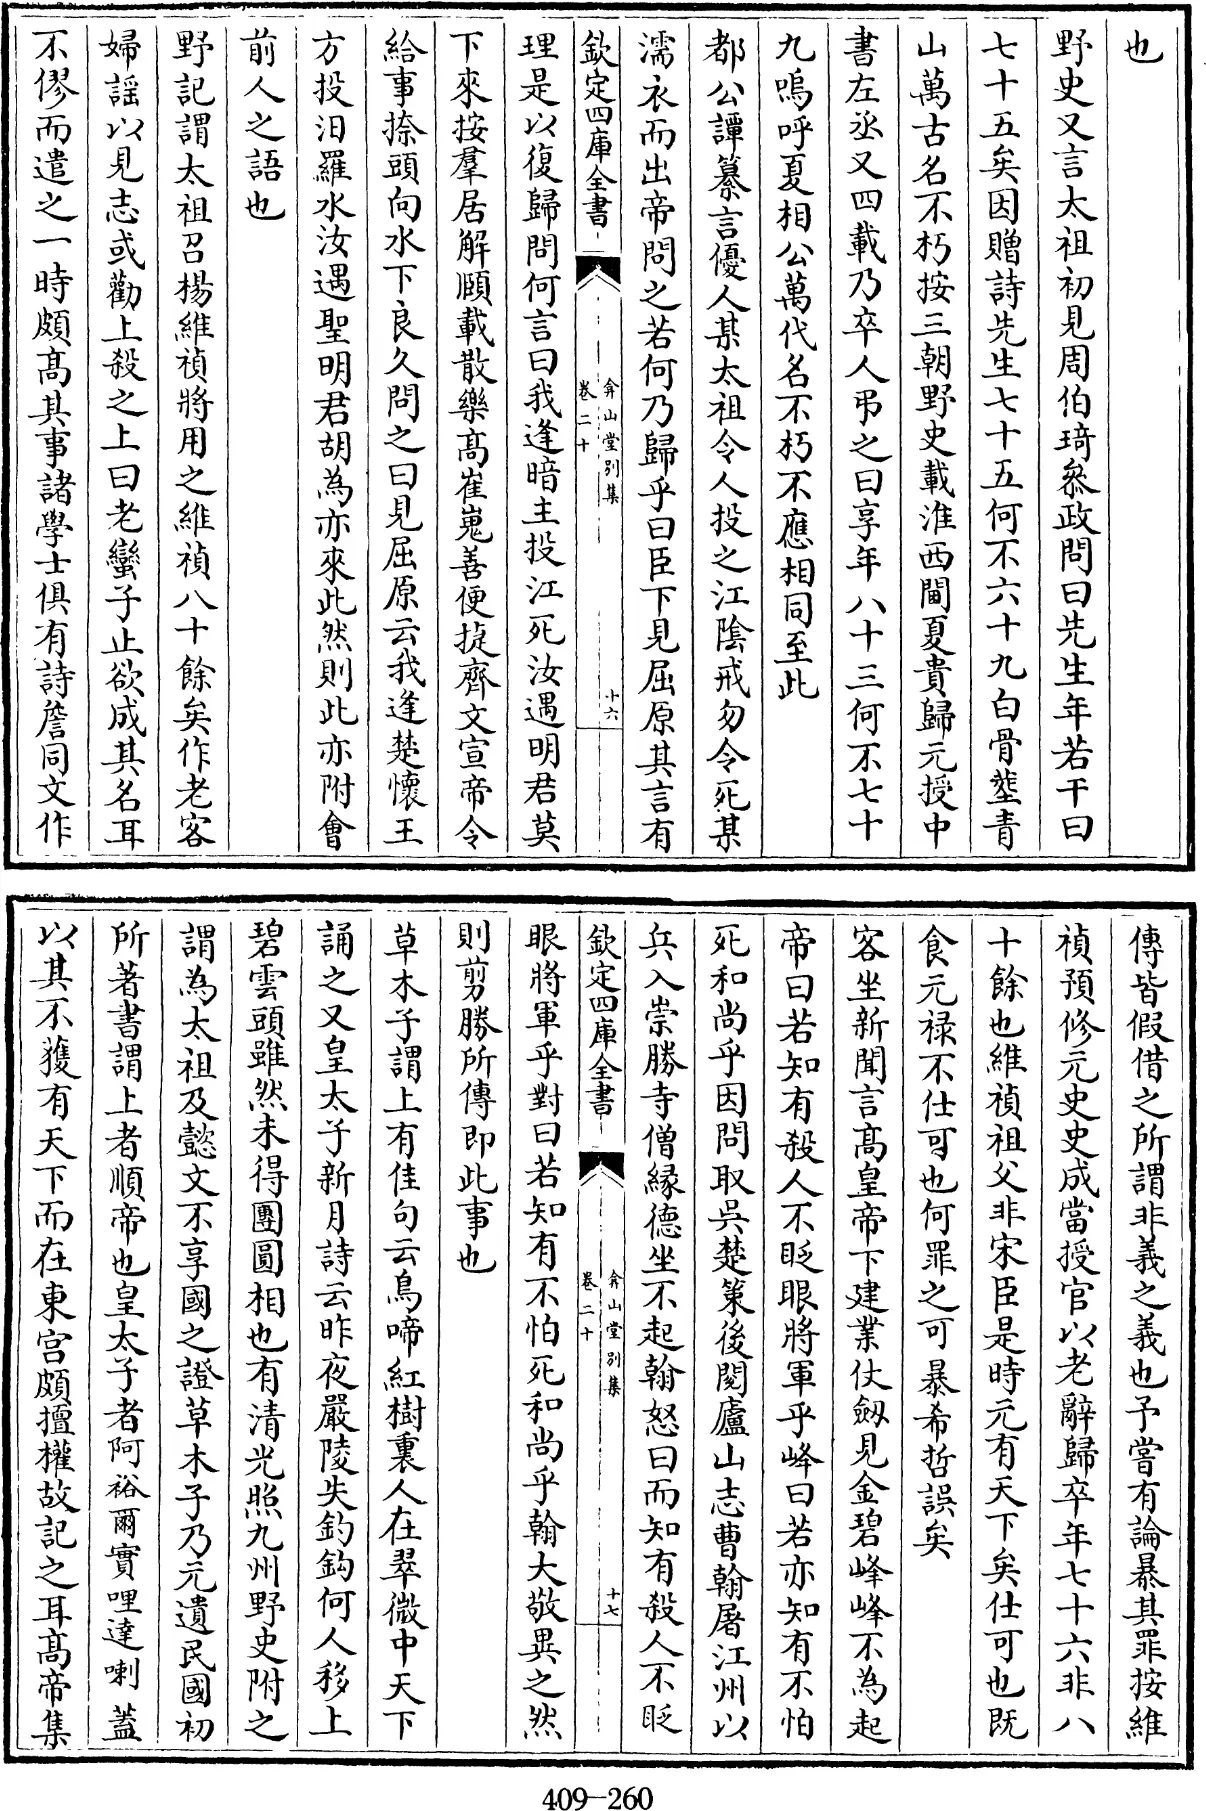 也
野史又言太祖初見周伯琦叅政問曰先生年若干曰
七十五矣因贈詩先生七十五何不六十九白骨塟青
山萬古名不朽按三朝野史載淮西閫夏貴歸元授中
書左丞又四載乃卒人弔之曰享年八十三何不七十
九嗚呼夏相公萬代名不朽不應相同至此
都公譚纂言優人某太祖令人投之江陰戒勿令死某
濡衣而出帝問之若何乃歸乎曰臣下見屈原其言有
欽定四庫全書
弇山堂別集
卷二十
十六
理是以復歸問何言曰我逢暗主投江死汝遇明君莫
下來按羣居解頤載散樂高崔嵬善便㨗齊文宣帝令
給事捺頭向水下良久問之曰見屈原云我逢楚懷王
方投汨羅水汝遇聖明君胡為亦來此然則此亦附會
前人之語也
野記謂太祖召楊維禎將用之維禎八十餘矣作老客
婦謡以見志或勸上殺之上曰老蠻子止欲成其名耳
不僇而遣之一時頗高其事諸學士俱有詩詹同文作
傳皆假借之所謂非義之義也予嘗有論暴其罪按維
禎預修元史史成當授官以老辭歸卒年七十六非八
十餘也維禎祖父非宋臣是時元有天下矣仕可也既
食元禄不仕可也何罪之可暴希哲誤矣
客坐新聞言高皇帝下建業仗劔見金碧峰峰不為起
帝曰若知有殺人不眨眼將軍乎峰曰若亦知有不怕
死和尚乎因問取吳楚策後閱廬山志曹翰屠江州以
兵入崇勝寺僧縁德坐不起翰怒曰而知有殺人不眨
欽定四庫全書
弇山堂別集
卷二十
十七
眼將軍乎對曰若知有不怕死和尚乎翰大敬異之然
則剪勝所傳即此事也
草木子謂上有佳句云鳥啼紅樹裏人在翠微中天下
誦之又皇太子新月詩云昨夜嚴陵失釣鈎何人移上
碧雲頭雖然未得團圓相也有清光照九州野史附之
謂為太祖及懿文不享國之證草木子乃元遺民國初
所著書謂上者順帝也皇太子者阿裕爾實哩達喇蓋
以其不獲有天下而在東宫頗擅權故記之耳高帝集
409-260